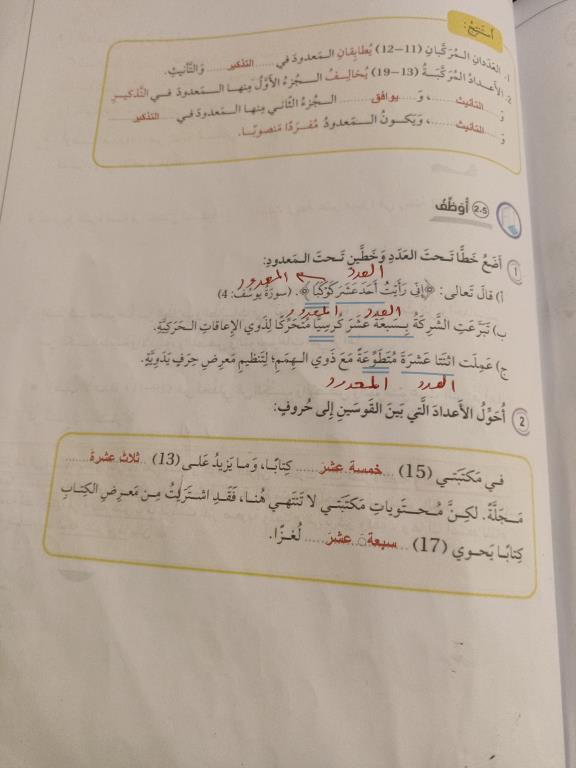 أَسْتَنْتِجُ:
1. العَدَدانِ الـمُرَكَّبانِ (11–12) يُطابِقانِ الـمَعدودَ في ..... التذكير ..... وَالتَّأنيثِ.
2. الأَعدادُ الـمُرَكَّبَةُ (13–19) يُخالِفُ الـجُزءُ الأَوَّلُ مِنها الـمَعدودَ في التَّذكيرِ
وَ ..... التأنيث .....، وَ ..... يوافق ..... الـجُزءُ الثّاني مِنها الـمَعدودَ في ..... التذكير .....
وَ ..... التأنيث .....، وَيَكونُ الـمَعدودُ مُفرَدًا مَنصوبًا.
2-5 أُوَظِّفُ
1 أَضَعُ خَطًّا تَحتَ العَدَدِ وَخَطَّينِ تَحتَ الـمَعدودِ:
العدد المعدود
أ) قالَ تَعالى: ﴿إِنِّي رَأَيْتُ أَحَدَ عَشَرَ كَوْكَبًا﴾. (سورَةُ يوسُفَ: 4)
العدد المعدود
ب) تَبَرَّعَتِ الشَّرِكَةُ بِسَبعَةَ عَشَرَ كُرسِيًّا مُتَحَرِّكًا لِذَوي الإِعاقاتِ الـحَرَكِيَّةِ.
ج) عَمِلَت اثنَتا عَشرَةَ مُتَطَوِّعَةً مَعَ ذَوي الـهِمَمِ؛ لِتَنظيمِ مَعرِضِ حِرَفٍ يَدَوِيَّةٍ.
العدد المعدود
2 أُحَوِّلُ الأَعدادَ الَّتي بَينَ القَوسَينِ إِلى حُروفٍ:
في مَكتَبَتي (15) ..... خمسة عشر ..... كِتابًا، وَما يَزيدُ عَلى (13) ..... ثلاث عشرة .....
مَجَلَّةً. لكِنَّ مُحتَوَياتِ مَكتَبَتي لا تَنتَهي هُنا، فَقَد اشتَرَيتُ مِن مَعرِضِ الكِتابِ
كِتابًا يَحوي (17) ..... سبعةَ عشرَ ..... لُغزًا.